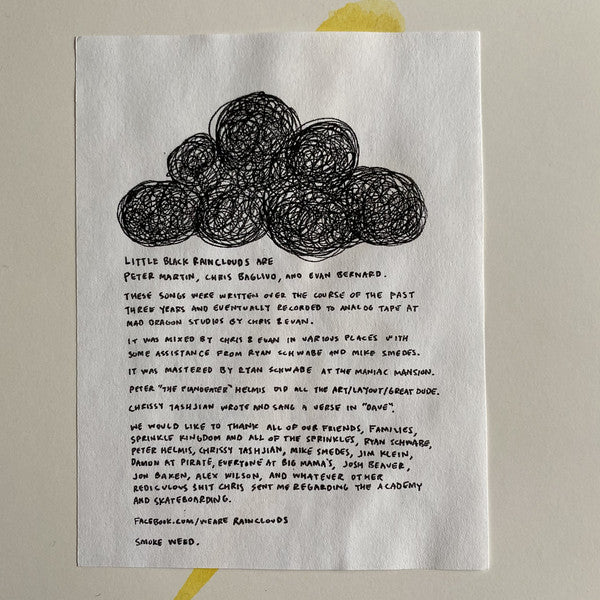 LITTLE BLACK RAINCLOUDS ARE
PETER MARTIN, CHRIS BAGLIVO, AND EVAN BERNARD.
THESE SONGS WERE WRITTEN OVER THE COURSE OF THE PAST
THREE YEARS AND EVENTUALLY RECORDED TO ANALOG TAPE AT
MAD DRAGON STUDIOS BY CHRIS & EVAN.
IT WAS MIXED BY CHRIS & EVAN IN VARIOUS PLACES WITH
SOME ASSISTANCE FROM RYAN SCHWABE AND MIKE SMEDES.
IT WAS MASTERED BY RYAN SCHWABE AT THE MANIAC MANSION.
PETER "THE HELMIS DID ALL THE ART/LAYOUT/GREAT DUDE.
CHRISSY TASHJIAN WROTE AND SANG A VERSE IN "DAVE".
WE WOULD LIKE TO THANK ALL OF OUR FRIENDS, FAMILIES,
SPRINKLE KINGDOM AND ALL OF THE SPRINKLES, RYAN SCHWABE,
PETER HELMIS, CHRISSY TASHJIAN, MIKE SMEDES, JIM KLEIN,
DAMON AT PIRATE, EVERYONE AT BIG MAMA'S, JOSH BEAVER,
JON BAKEN, ALEX WILSON, AND WHATEVER OTHER
REDICULOUS SHIT CHRIS SENT ME REGARDING THE ACADEMY
AND SKATEBOARDING.
FACEBOOK.COM/WEARE RAINCLOUDS
SMOKE WEED.